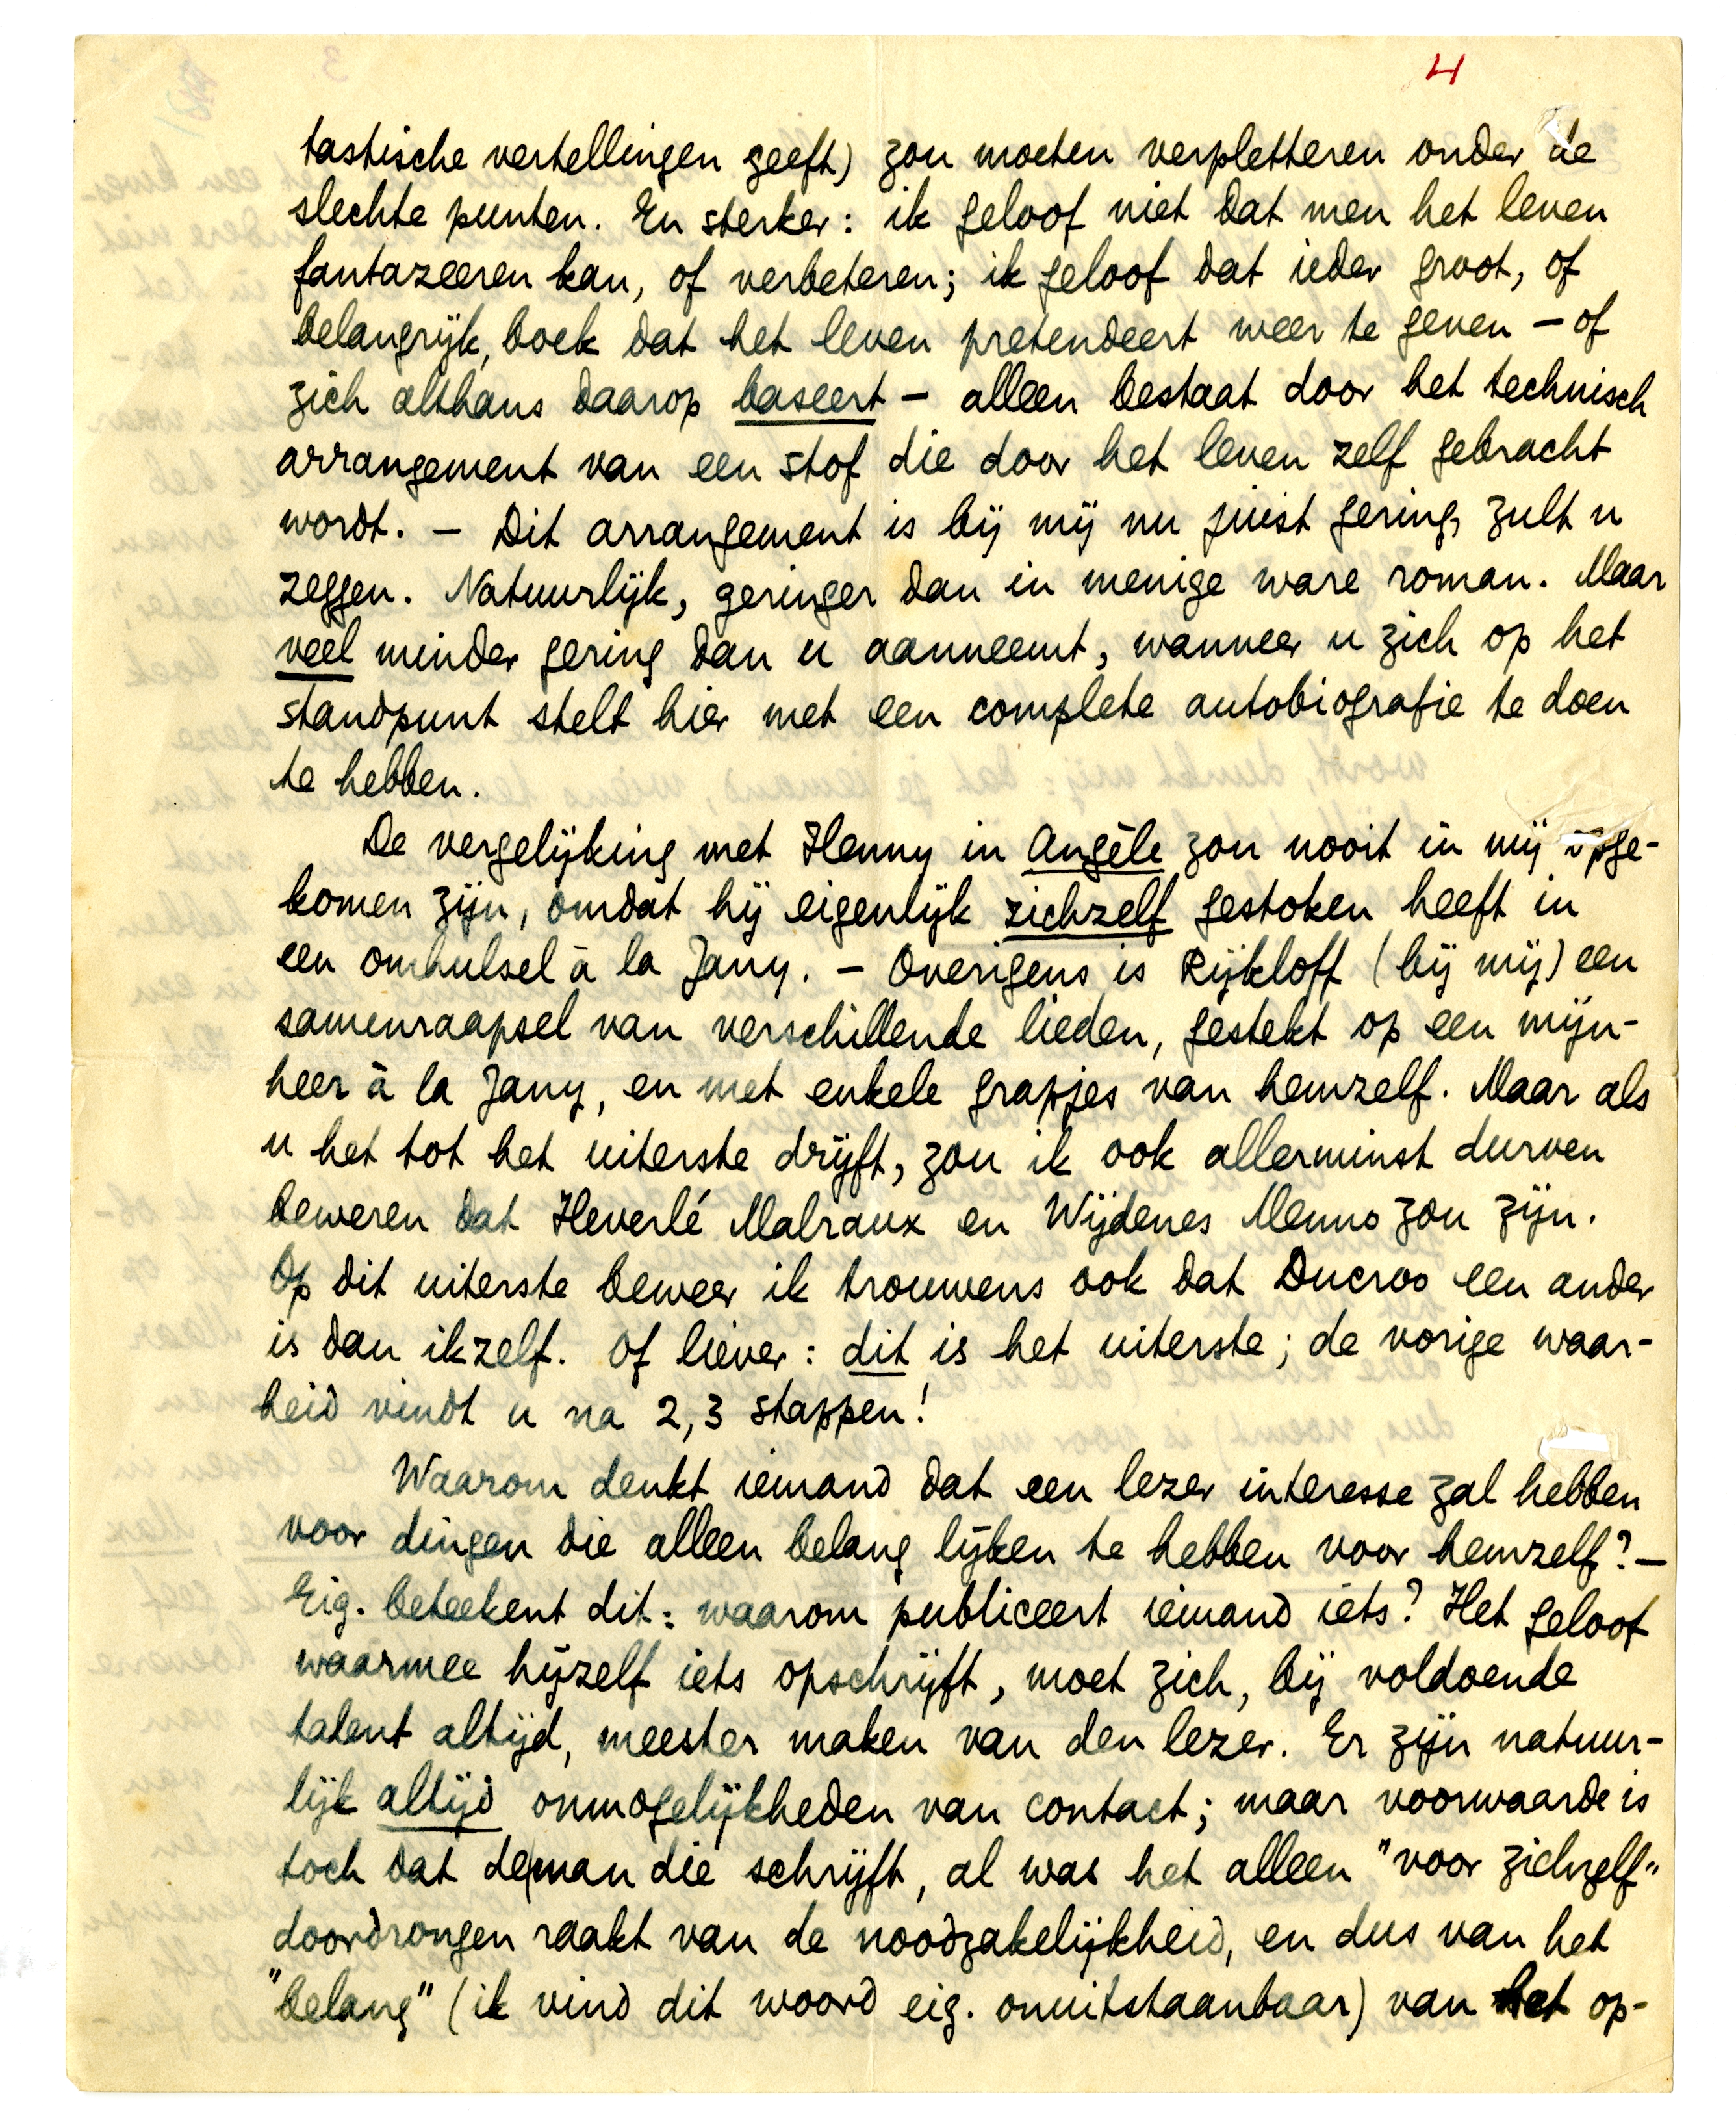 4
tastische vertellingen geeft) zou moeten verpletteren onder de
slechte punten. En sterker: ik geloof niet dat men het leven
fantazeeren kan, of verbeteren; ik geloof dat ieder groot, of
belangrijk, boek dat het leven pretendeert weer te geven – of
zich althans daarop baseert – alleen bestaat door het technisch
arrangement van een stof die door het leven zelf gebracht
wordt. – Dit arrangement is bij mij nu juist gering, zult u
zeggen. Natuurlijk, geringer dan in menige ware roman. Maar
veel minder gering dan u aanneemt, wanneer u zich op het
standpunt stelt hier met een complete autobiografie te doen
te hebben.
De vergelijking met Henny in Angèle zou nooit in mij opge-
komen zijn, omdat hij eigenlijk zichzelf gestoken heeft in
een omhulsel à la Jany. – Overigens is Rijkloff (bij mij) een
samenraapsel van verschillende lieden, gestekt op een mijn-
heer à la Jany, en met enkele grapjes van hemzelf. Maar als
u het tot het uiterste drijft, zou ik ook allerminst durven
beweren dat Heverlé Malraux en Wijdenes Menno zou zijn.
Op dit uiterste beweer ik trouwens ook dat Ducroo een ander
is dan ikzelf. Of liever: dit is het uiterste; de vorige waar-
heid vindt u na 2, 3 stappen!
Waarom denkt iemand dat een lezer interesse zal hebben
voor dingen die alleen belang lijken te hebben voor hemzelf? –
Eig. beteekent dit: waarom publiceert iemand iets? Het geloof
waarmee hijzelf iets opschrijft, moet zich, bij voldoende
talent altijd, meester maken van den lezer. Er zijn natuur-
lijk altijd onmogelijkheden van contact; maar voorwaarde is
toch dat de man die schrijft, al was het alleen "voor zichzelf"
doordrongen raakt van de noodzakelijkheid, en dus van het
"belang" (ik vind dit woord eig. onuitstaanbaar) van het op-